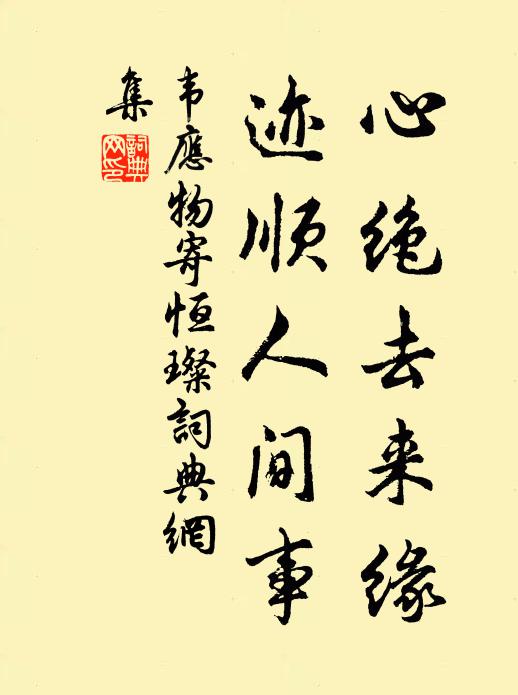 心绝去来缘
迹顺人间事
韦應物寄恒璨詞典網
集
詞典网印